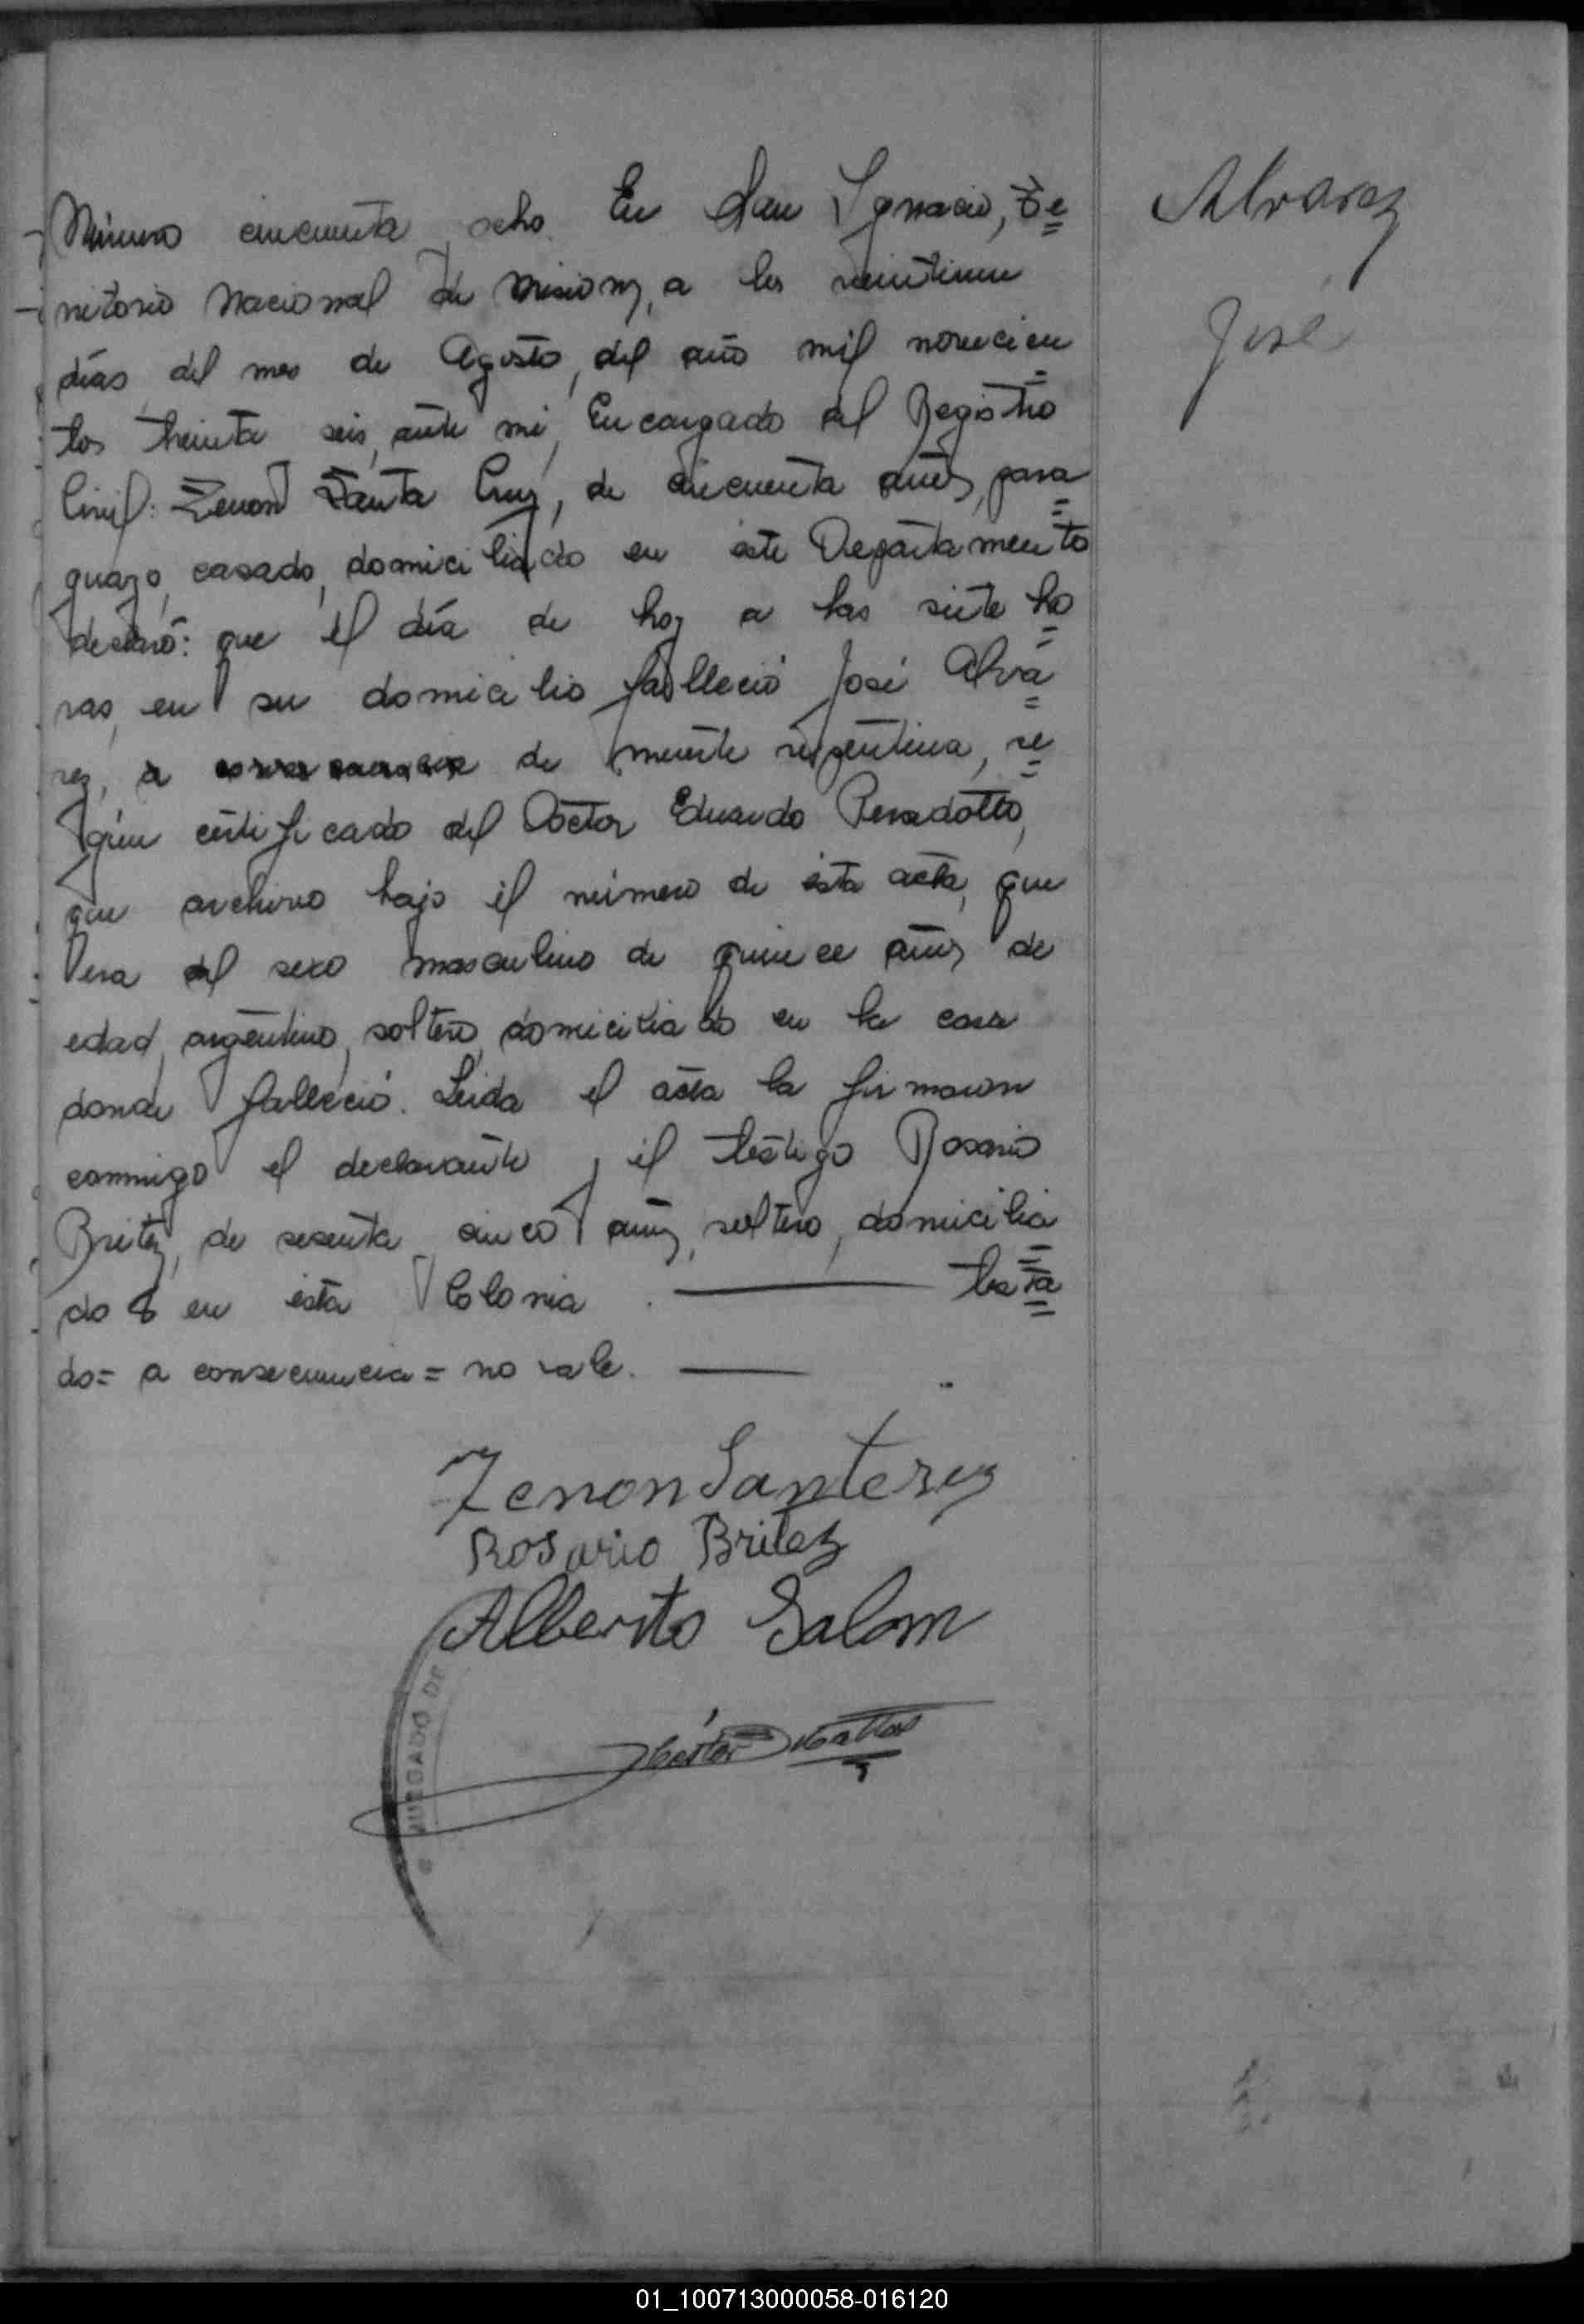 Número cincuenta ocho. En San Ignacio, Te
rritorio Nacional de Misiones, a los veintinueve
días del mes de Agosto, del año mil novecien
tos treinta seis, ante mi, Encargado del Registro
Civil: Zenon Santa Cruz, de cincuenta años, para
guayo, casado, domiciliado en este Departamento
declaró: que el día de hoy a las siete ho
ras, en su domicilio falleció José Alva
rez, a consecuencia de muerte repentina, se
gún certificado del Doctor Eduardo
que archivo bajo el número de esta acta, que
era del sexo masculino de quince años de
edad, argentino, soltero, domiciliado en la casa
donde falleció. Leida el acta la firmaron
conmigo el declarante y el testigo Rosario
Britez, de sesenta cinco años, soltero, domicilia
do en esta Colonia. Testa
do= a consecuencia= no vale.
Zenon Santacruz
Rosario Britez
Alberto Salom
JUZGADO DE
Alvarez
José
01_100713000058-016120